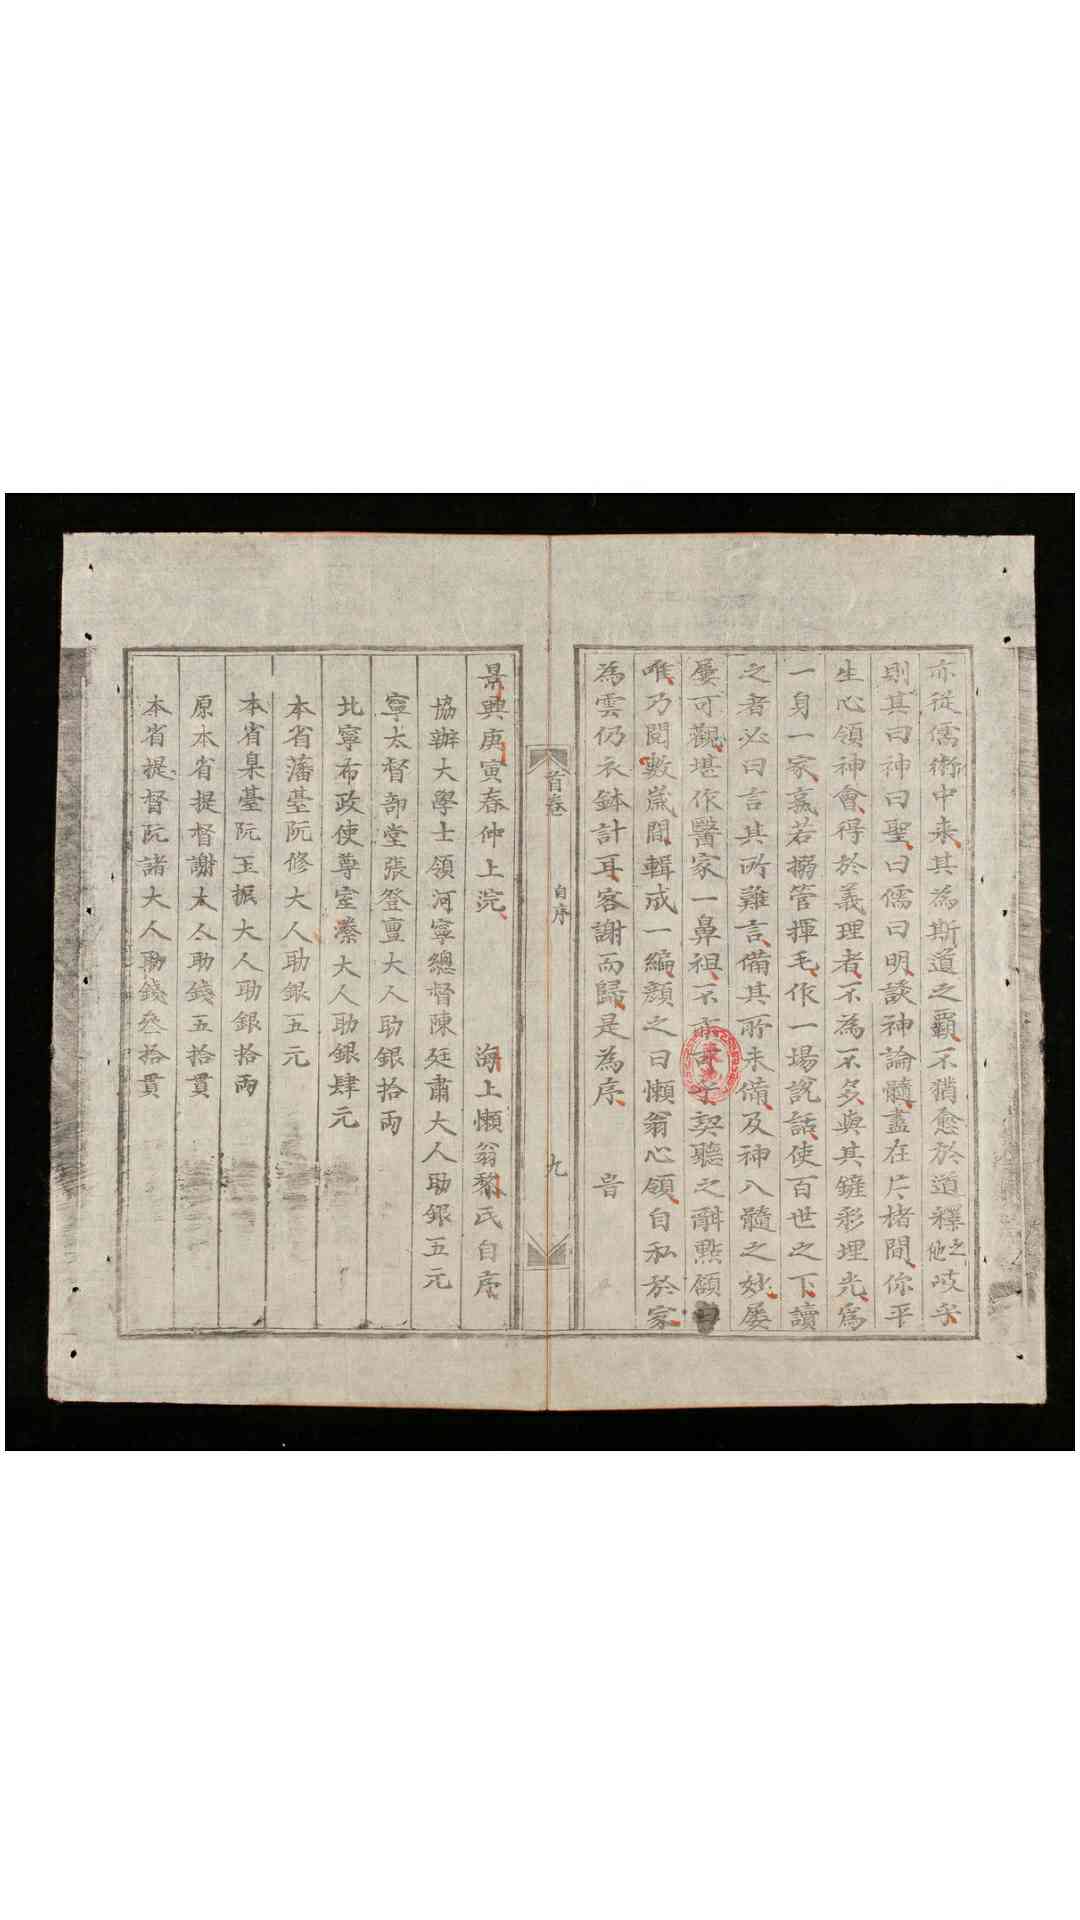 亦從儒術中來其為斯道之覇不猶愈於道釋之他岐乎
則其曰神曰聖曰儒曰明談神論髓盡在片楮間你平
生心領神會得於義理者不為不多與其鏟彩埋光爲
一身一家焉若搦管揮毛作一場說話使百世之下讀
之者必曰言其所難言備其所未備及神入髓之妙屡
屡可觀堪作醫家一鼻祖不亦可乎契聽之酹黙頷曰
唯乃閱數嵗間輯成一編顏之曰懶翁心領自私於家
為雲仍衣鉢計耳客謝而歸是為序 旹
首卷 自序 九
景興庚寅春仲上浣 海上懶翁黎氏自序
協辦大學士領河寧總督陳廷肅大人助銀五元
寧太督部堂張登亶大人助銀拾両
北寧布政使尊室漛大人助銀肆元
本省藩臺阮修大人助銀五元
本省臬臺阮玉振大人助銀拾両
原本省提督謝大人助錢五拾貫
本省提督阮諸大人助錢叄拾貫